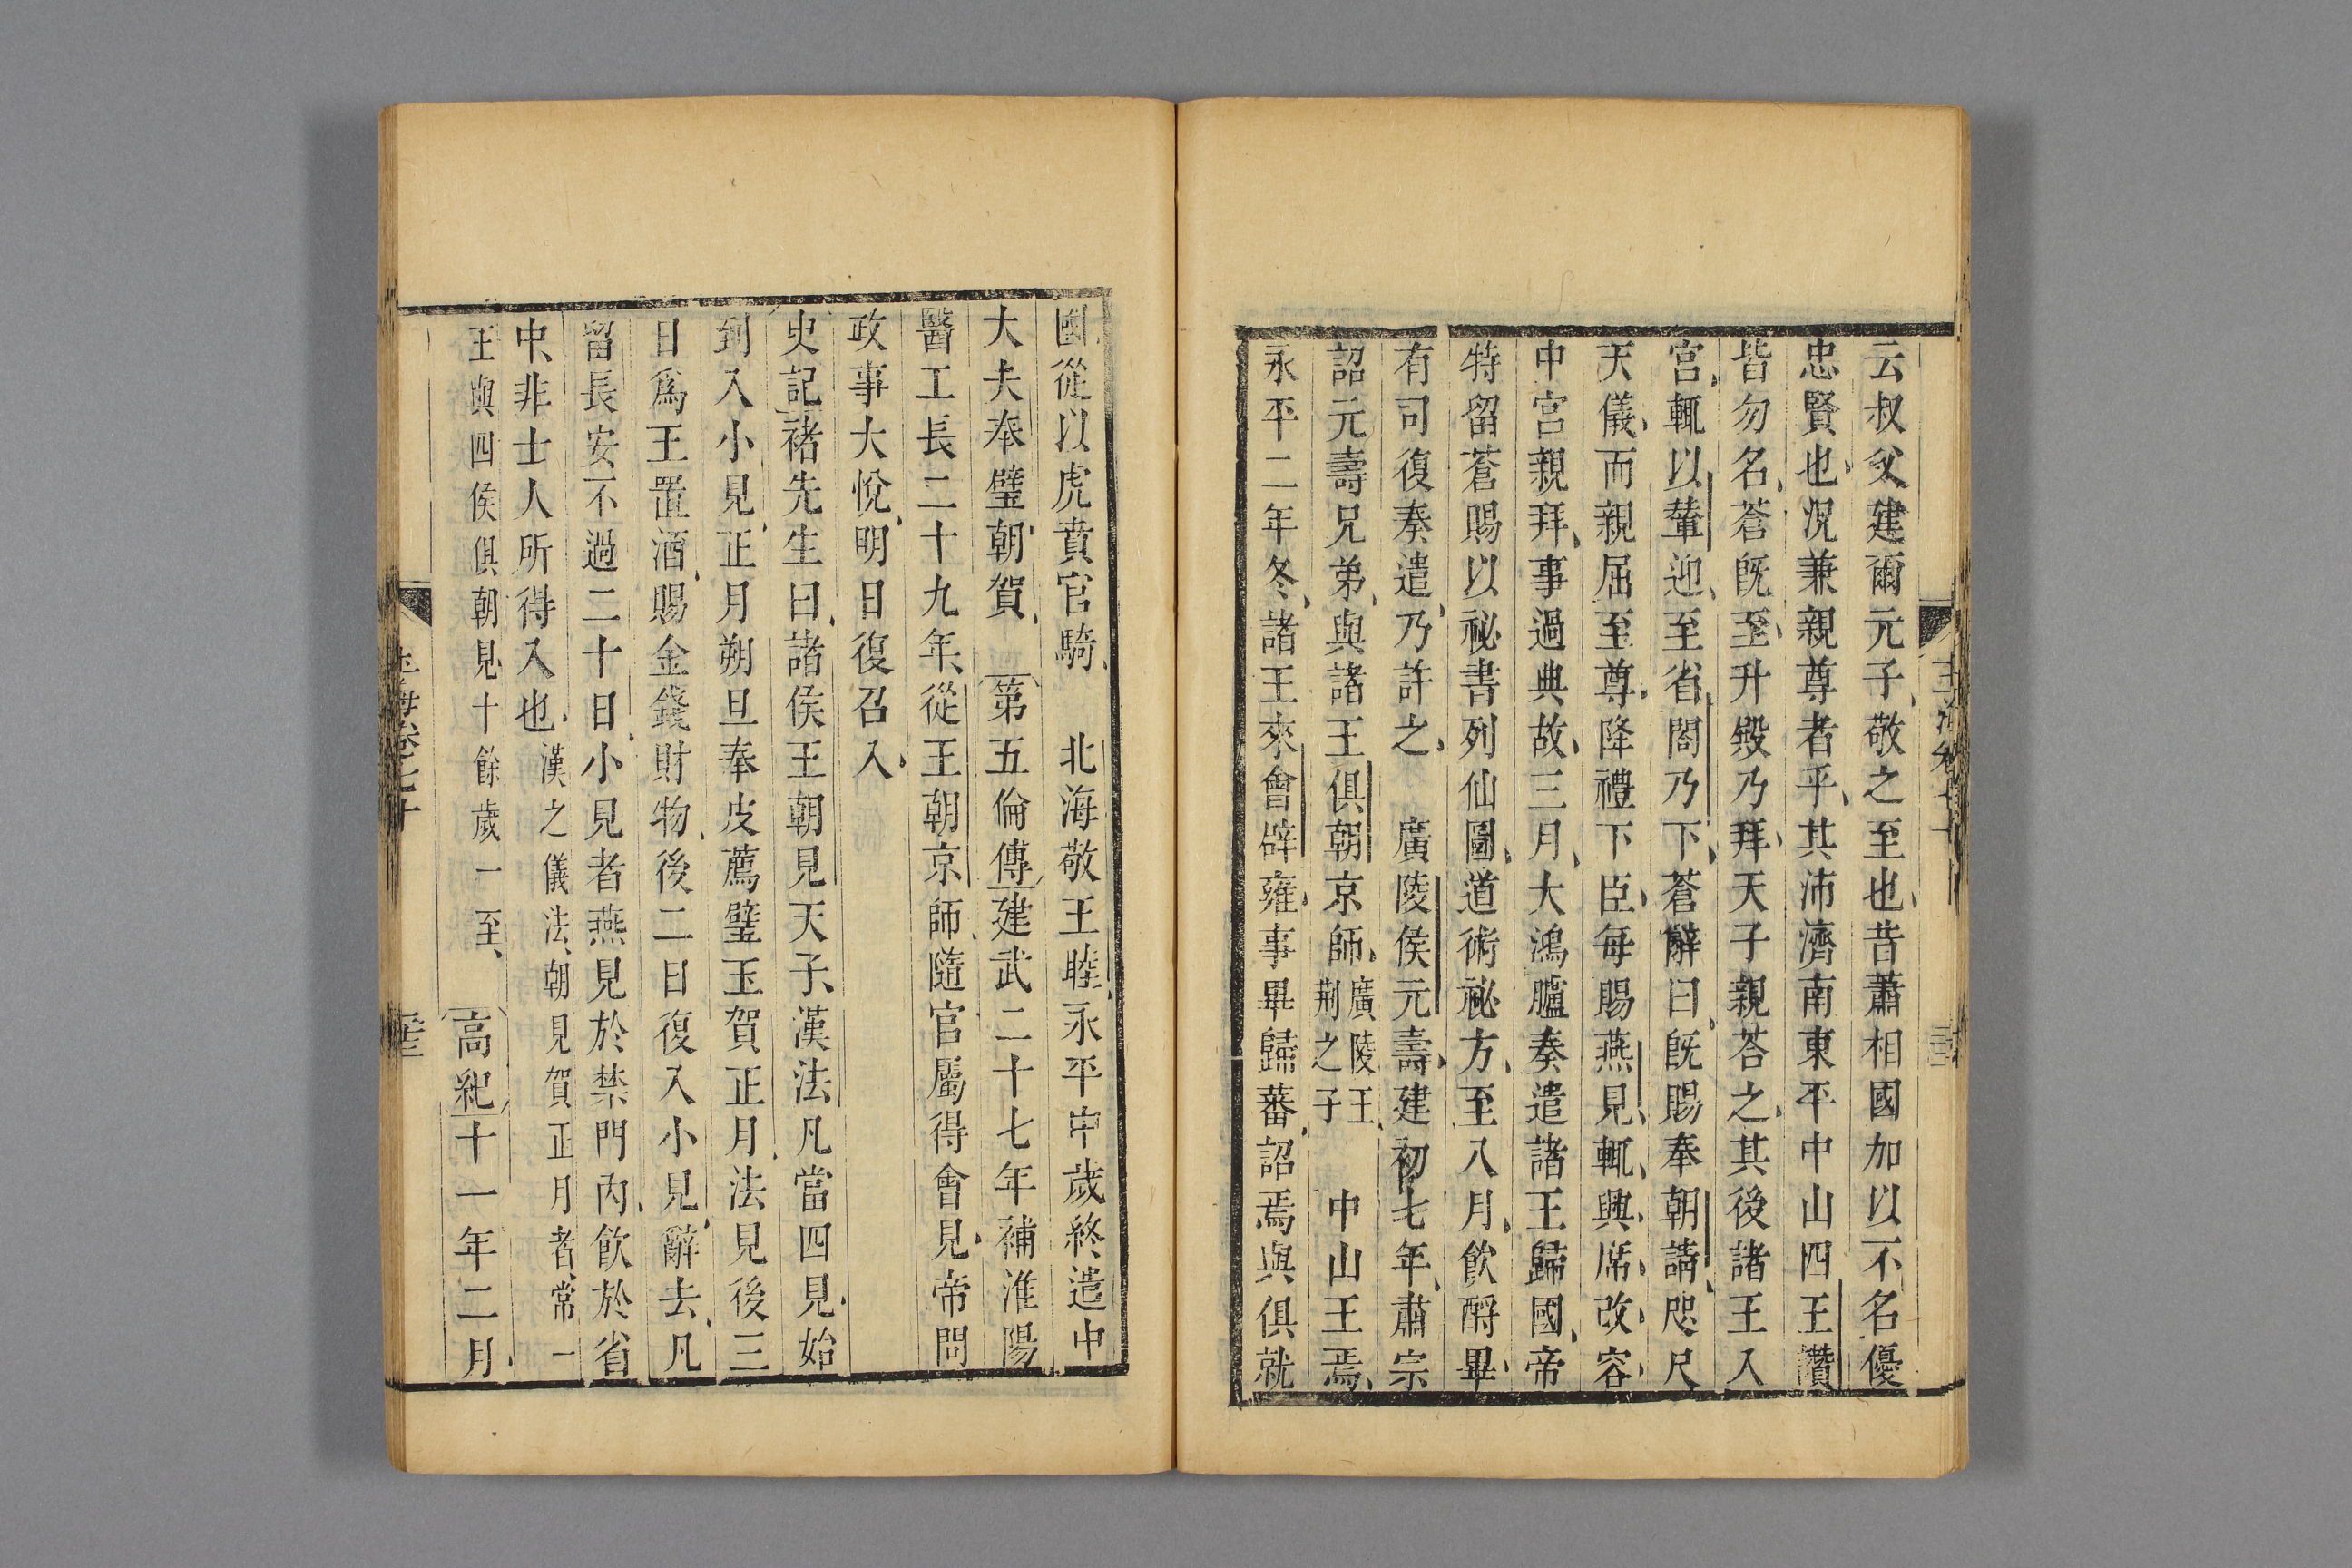 云叔父建爾元子敬之至也昔蕭相國加以不名優
忠賢也況兼親尊者乎其沛濟南東平中山四王讚
皆勿名蒼旣至升殿乃拜天子親荅之其後諸王入
宮輒以輦迎至省閤乃下蒼辭曰旣賜奉朝請咫尺
天儀而親屈至尊降禮下臣每賜燕見輒興席改容
中宮親拜事過典故三月大鴻臚奏遣諸王歸國帝
特留蒼賜以祕書列仙圖道術祕方至八月飲酎畢
有司復奏遣乃許之 廣陵侯元壽建初七年肅宗
詔元壽兄弟與諸王俱朝京師廣陵王荆之子 中山王焉
永平二年冬諸王來會辟雍事畢歸蕃詔焉與俱就
國從以虎賁官騎 北海敬王睦永平中歲終遣中
大夫奉璧朝賀 第五倫傳建武二十七年補淮陽
醫工長二十九年從王朝京師隨官屬得會見帝問
政事大悅明日復召入
史記褚先生曰諸侯王朝見天子漢法凡當四見始
到入小見正月朔旦奉皮薦璧玉賀正月法見後三
日爲王置酒賜金錢財物後二日復入小見辭去凡
留長安不過二十日小見者燕見於禁門內飲於省
中非士人所得入也漢之儀法朝見賀正月者常一
王與四侯俱朝見十餘歲一至 高紀十一年二月
玉海卷七十